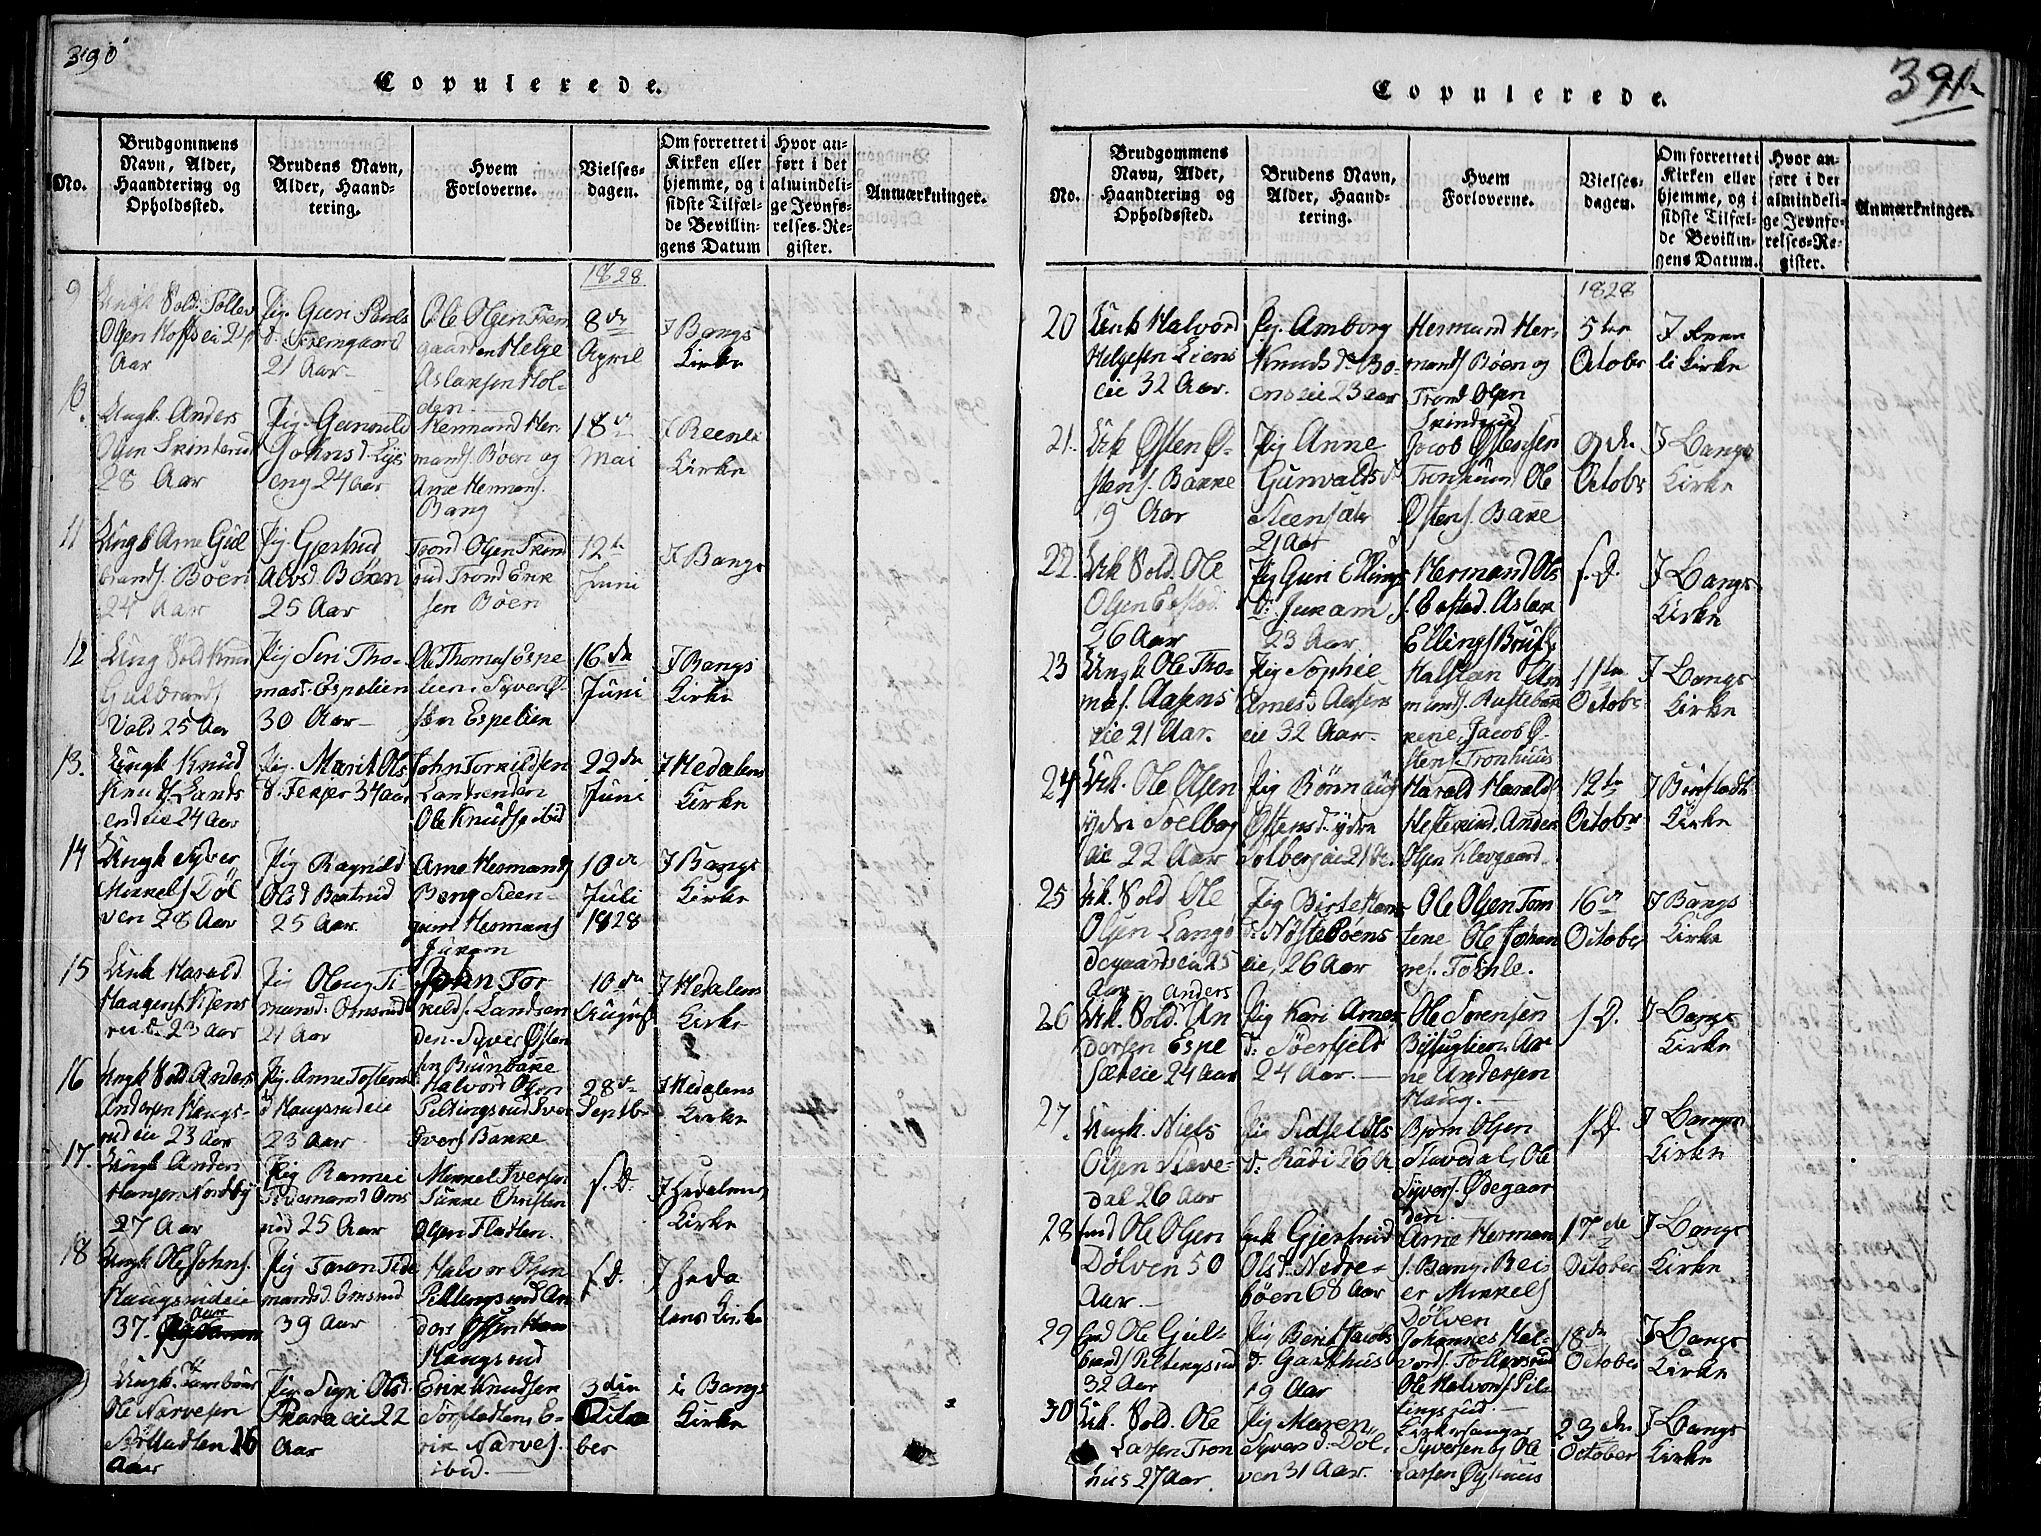 390
Copulerede.
No.
Brudgommens
Navn, Alder,
Haandtering og
Opholdssted.
Brudens Navn,
Alder, Haand-
tering.
Hvem
Forloverne.
Vielses-
dagen.
Om forrettet i
Kirken eller
hjemme, og i
sidste Tilfæl-
de Bevillin-
gens Datum
Hvor an-
ført i det
almindeli-
ge Jevnfø-
relses-Re-
gister.
Anmærkninger.
1828
9
Ungk Sold. Tollev
Olsen Hoffs eie 24
Aar
Pig. Guri Pauls
d. Fremgaard
21 Aar
Ole Olsen Frem
gaarden Helge
Aslaksen Hol-
den.
8de
April
I Bangs
Kirke
10.
Ungk. Anders
Olsen Skinterud
28 Aar
Pig. Gunvild
Johnsd. Lijs
eng 24 aar
Hermand Her-
mands. Böen og
Arne Hermans.
Bang
18de
Mai
I Reenli
Kirke
11
Ungk Arne Gul
brands. Böen
24 Aar
Pig. Gjertrud
Alvsd. Böen
25 Aar
Trond Olsen Skind
rud Trond Erik
sen Böen
12te
Juni
I Bangs
12
Ung Sold Knud
Gulbrands.
Vold 25 Aar
Pig Siri Tho-
masd. Espelien
30 Aar
Ole Thomas. Espe
lien, Syver Ø-
sten Espelien
16de
Juni
I Bangs
Kirke
13.
Ungk Knud
Knuds. Lands
end eie 24 Aar
Pig. Marit Ols
d. Fekjer 34 aar
John Torkildsen
Lansenden
Ole Knuds. ibid
22de
Juni
I Hedalens
Kirke
14
Ungk Syver
Mikkels. Döl
ven 28 Aar
Pig Ragnild
Olsd Baatrud
25 Aar
Arne Hermands.
Bang Steen-
grim Hermans.
Juram
10de
Juli
1828
I Bangs
Kirke
15
Ungk Harald
Haagens. Kjens
rud. 23 aar
Pig Oloug Ti
mansd. Omsrud
21 Aar
John Tor
kilds. Landsen
den. Syver Østen
sen Brunbakke
10de
August
I Hedalens
Kirke
16
Ungk Sold Anders
Andersen Haugs-
rud eie 23 Aar
Pig. Anne Tostens
d Haugsrudeie
23 Aar
Halvord Olsen
Piltingsrud Iver
Ivers. Bakke
28de
Septbr
I Hedalens
Kirke
17.
Ungk Anders
Hansen Nordby
27 Aar
Pig Rannei
Tidemansd Oms
rud 25 Aar
Mikkel Iversen
Sukke Christian
Olsen Fladten.
s. D.
I Hedalens
Kirke
18
Ungk Ole Johns.
Haugsrudeie
37. Aar
Pig Taran Tide
mansd. Omsrud
39 Aar
Halvor Olsen
Piltingsrud An
ders Olsen
Haugsrud
s. D.
I Heda
lens Kirke
Ungk. Tambour
Ole Narvesen
Sörfladten 26
Aar
Pig. Sigri Olsd.
Skara eie 22
Aar
Erik Knudsen
Sörfladten, E-
rik Narves.
ibid.
3die
Octo
ber
i Bangs
Kirke
391.
Copulerede.
No.
Brudgommens
Navn, Alder,
Haandtering og
Opholdssted.
Brudens Navn,
Alder, Haand-
tering.
Hvem
Forloverne.
Vielses-
dagen.
Om forrettet i
Kirken eller
hjemme, og i
sidste Tilfæl-
de Bevillin-
gens Datum.
Hvor an-
ført i det
almindeli-
ge Jevnfø-
relses-Re-
gister.
Anmærkninger.
1828
20
Unk Halvord
Helgesen Liens
eie 32 Aar.
Pig. Amborg
Knuds Dr Bo-
ens eie 23 aar
Hermand Her-
mands Böen og
Trond Olsen
Skindrud
5te
October
I Renn
li Kirke
21.
Uk Østen Ø-
stens. Bakke
19 Aar
Pig Anne
Gunvalds d
Steensæte
21 Aar
Jacob Østensen
Tronhuus Ole
Østens. Bakke
9de
Octobr
I Bangs
Kirke
22.
Uk Sold. Ole
Olsen Ersted.
26 Aar
Pig Guri Ellings
D. Juram
23 Aar
Hermand Ols
s. Ersted. Aslak
Ellings Bruf
s. D.
I Bangs
Kirke
23
Ungk Ole Tho-
mes. Aasens
eie 21 Aar.
Pig Sophie
Arnes d Aasens
eie 32 Aar
Halsten Am
munds. Rustebak
kene, Jacob Ø-
stens. Tronhuus
11te
Octobr
I Bangs
Kirke
24
Uk. Ole Olsen
ydre Soelberg
eie 22 Aar
Pig Rönnaug
Østens d. ydre
Solberg eie 21 Ar.
Harald Haralds.
Hestekind. Anders
Olsen Klevgaard.
12te
October
I Bruflads
Kirke
25
Uk. Sold Ole
Olsen Langö
degaards eie 25
Aar
Pig Birte Hans
d. Nösteboens
eie, 26 Aar
Ole Olsen Tom
tene Ole Johan
nes. Tohnle.
16de
October
I Bangs
Kirke
26
Anders
Uk. Sold. An
dersen Espe
sæt eie 24 Aar
Pig Kari Arnes
d. Söerfjeld
24 Aar.
Ole Sörensen
Bifuglien. Ar
ne Andersen
Haug.
s. D.
I Bangs
Kirke
27.
Ungk. Niels
Olsen Stave-
dal 26 Aar
Pig Sidsel Ols
d. Rudi 26 Ar
Björn Olsen
Stavedal, Ole
Syvers. Ødegaar
den
s. D.
I Bangs
Kirke
28
Emd Ole Olsen
Dölven 50
Aar.
Enk Gjertrud
Olsd. Nedre-
böen 68 Aar
Arne Herman
s. Bang. Bei
er Mikkels
Dölven
17de
October
I Bangs
Kirke
29
Emd Ole Gul-
brands. Piltingsrud
32 Aar
Pig Berit Jacobs
d. Garthus
19 Aar
Johannes Hal-
vords. Tollevsrud
Ole Halvords. Pil-
tingsrud.
18de
October
I Bangs
Kirke
30
Uk. Sold. Ole
Larsen Tron
huus 27 Aar.
Pig Maren
Syvers d. Döl-
ven 31 Aar.
Kirkesanger
Syversen og Ole
Larsen Øyhuus
23de
October
I Bangs
Kirke